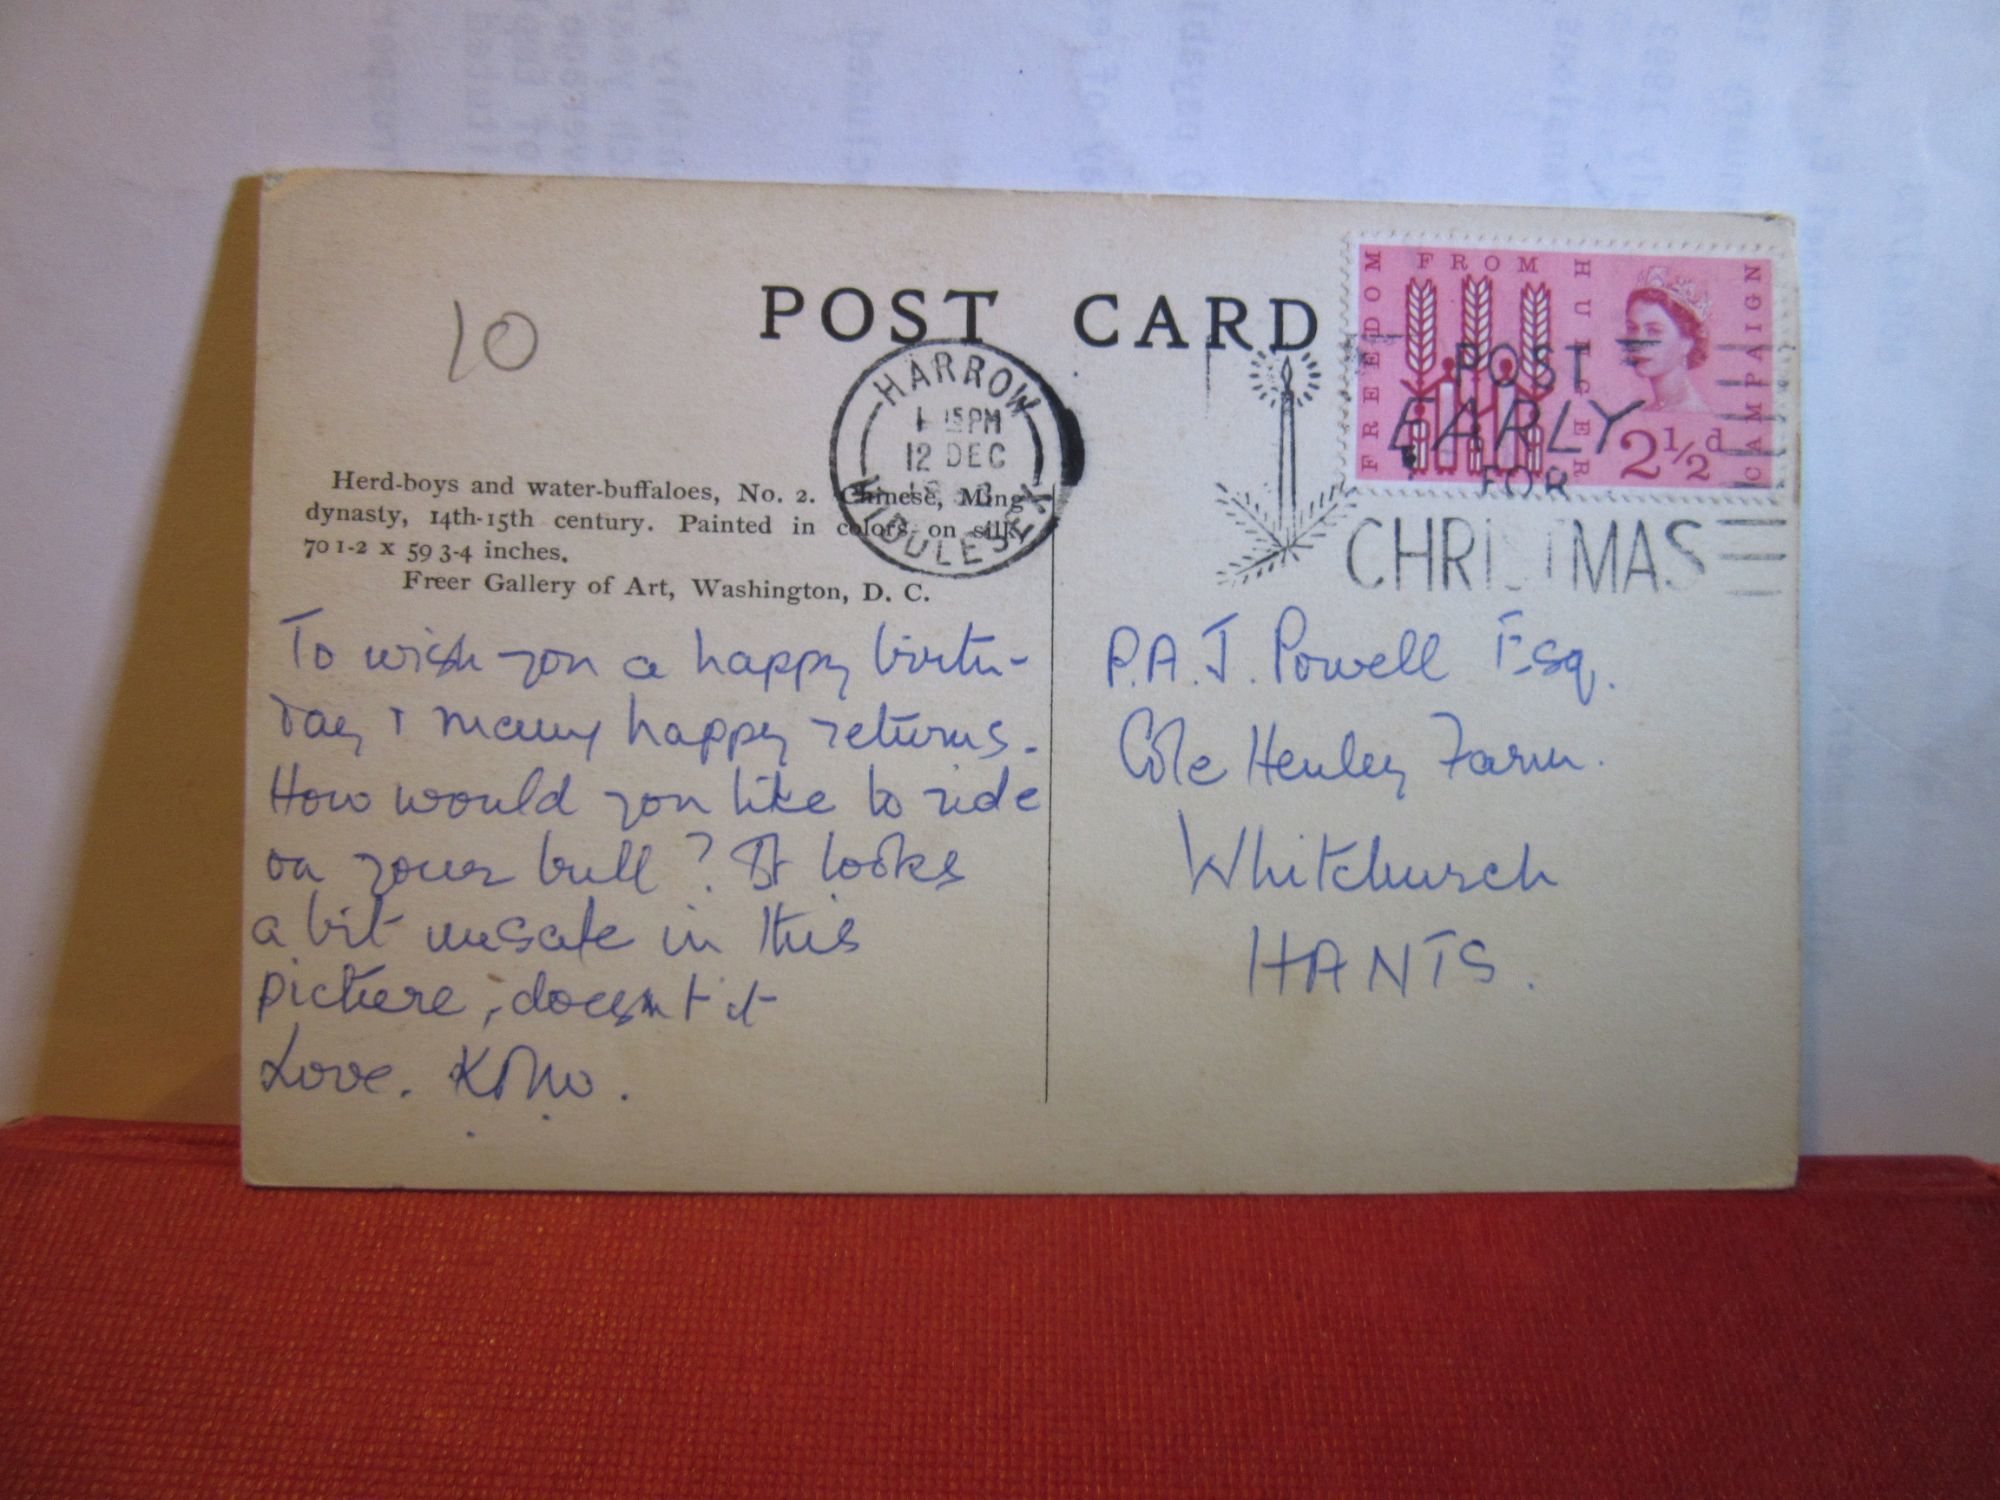 POST CARD
10
HARROW
1 15 PM
12 DEC
MIDDLESEX
FREEDOM FROM HUNGER CAMPAIGN
2½d
POST
EARLY
FOR
CHRISTMAS
Herd-boys and water-buffaloes, No. 2. Chinese, Ming
dynasty, 14th-15th century. Painted in colors on silk,
70 1-2 x 59 3-4 inches.
Freer Gallery of Art, Washington, D. C.
To wish you a happy birth-
day & many happy returns.
How would you like to ride
on your bull? It looks
a bit unsafe in this
picture, doesn't it
Love.
P.A.J. Powell Esq.
Cole Henley Farm.
Whitchurch
HANTS.